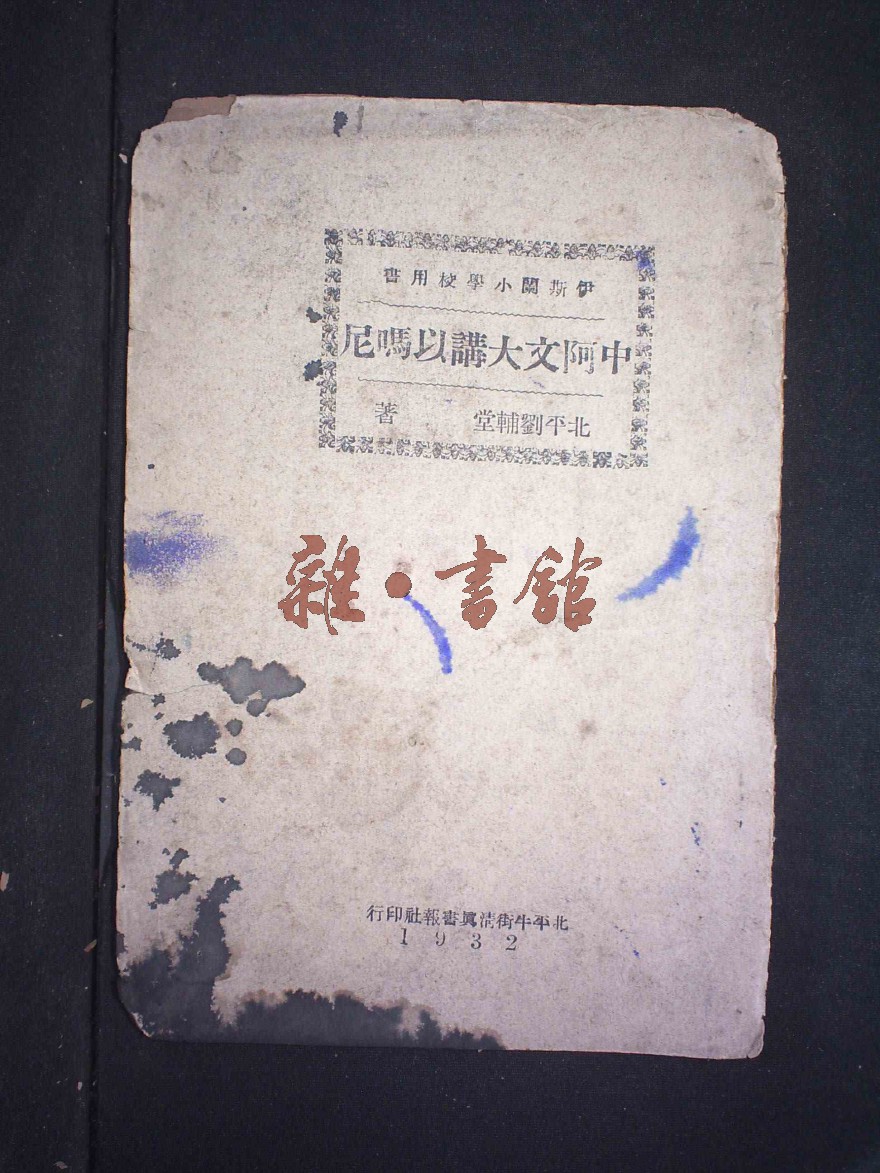 伊斯蘭小學校用書
中阿文大講以嗎尼
北平劉輔堂 著
雜·書舘
北平牛街清眞書報社印行
1932